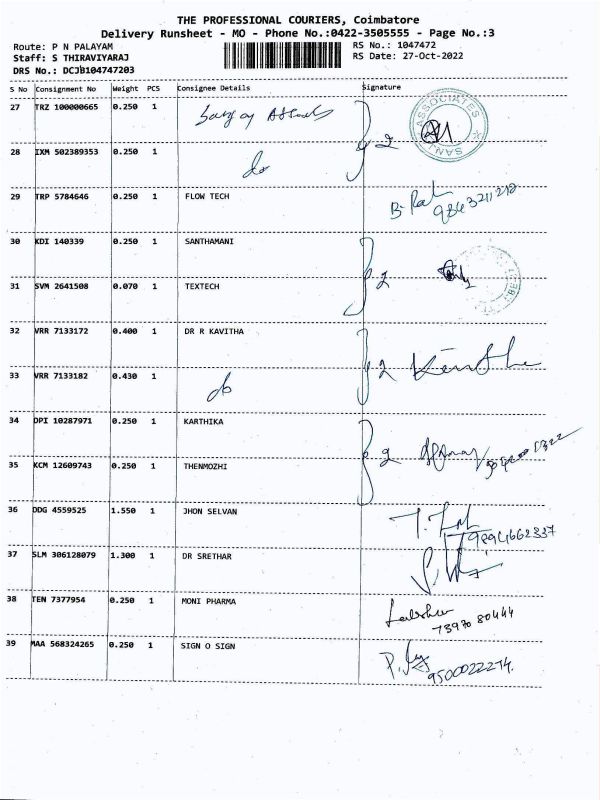 THE PROFESSIONAL COURIERS, Coimbatore
Delivery Runsheet - MO - Phone No.:0422-3505555 - Page No.:3
Route: P N PALAYAM
RS No.: 1047472
Staff: S THIRAVIYARAJ
RS Date: 27-Oct-2022
DRS No.: DCJB104747203
S No Consignment No Weight PCS Consignee Details Signature
27 TRZ 100000665 0.250 1 2 ASSOCIATES
28 IXM 502389353 0.250 1 do
29 TRP 5784646 0.250 1 FLOW TECH
30 KDI 140339 0.250 1 SANTHAMANI
31 SVM 2641508 0.070 1 TEXTECH 2
32 VRR 7133172 0.400 1 DR R KAVITHA
33 VRR 7133182 0.430 1 do 2
34 DPI 10287971 0.250 1 KARTHIKA
35 KCM 12609743 0.250 1 THENMOZHI 2
36 DDG 4559525 1.550 1 JHON SELVAN
9894662337
37 SLM 306128079 1.300 1 DR SRETHAR
38 TEN 7377954 0.250 1 MONI PHARMA
73970 80444
39 MAA 568324265 0.250 1 SIGN O SIGN
9500022274.